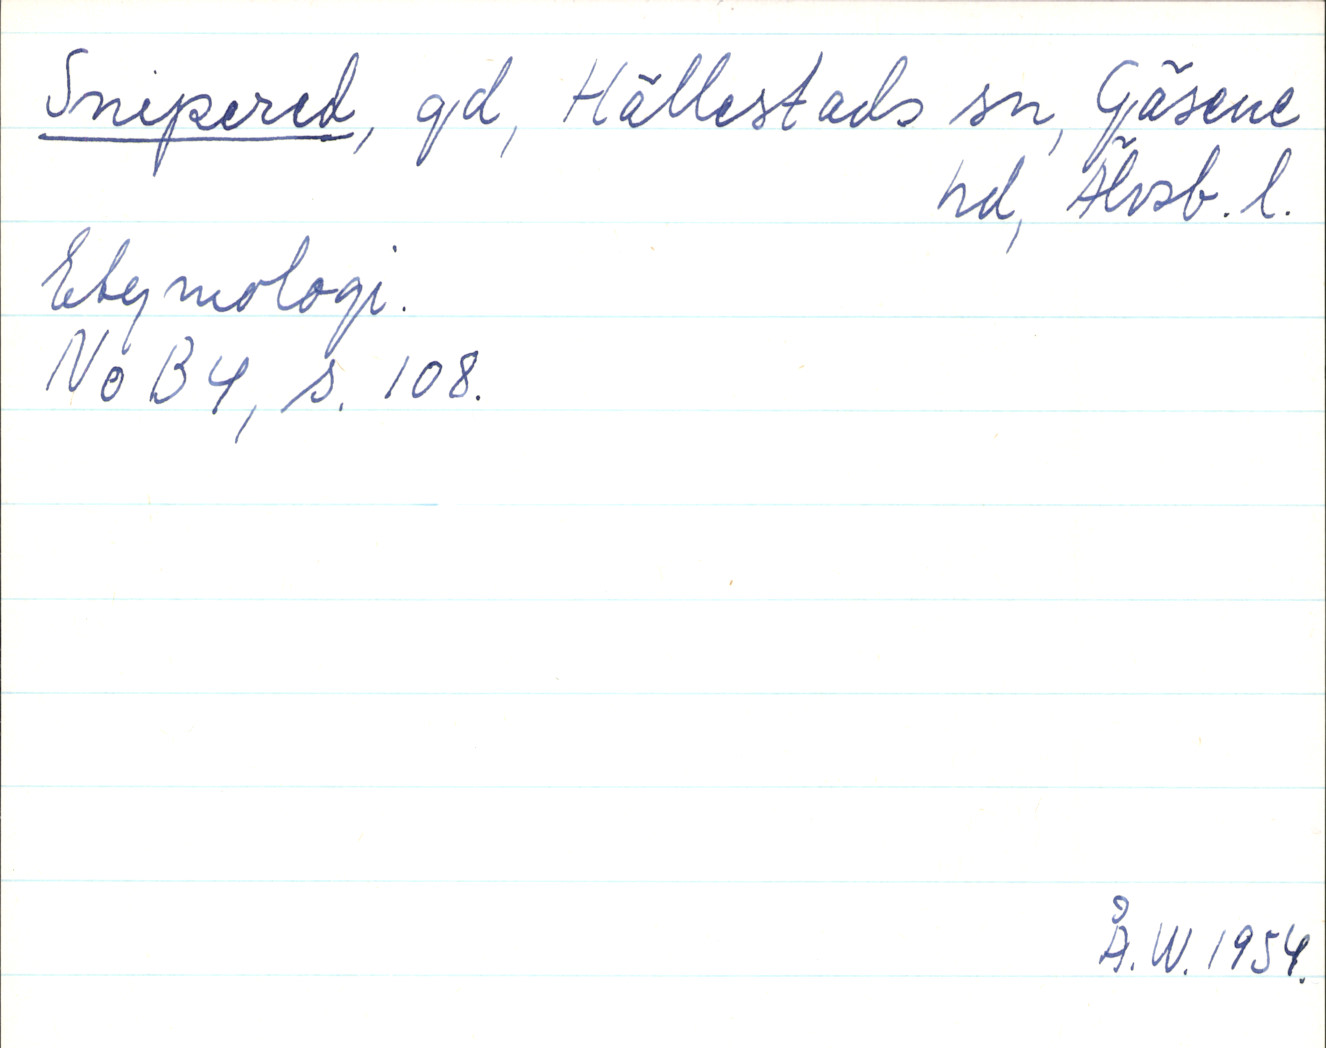 Snipered, gd, Hällestads sn, Gäsene
hd, Älvsb. l.
Etymologi.
No B 4, s. 108.
Å. W. 1954.